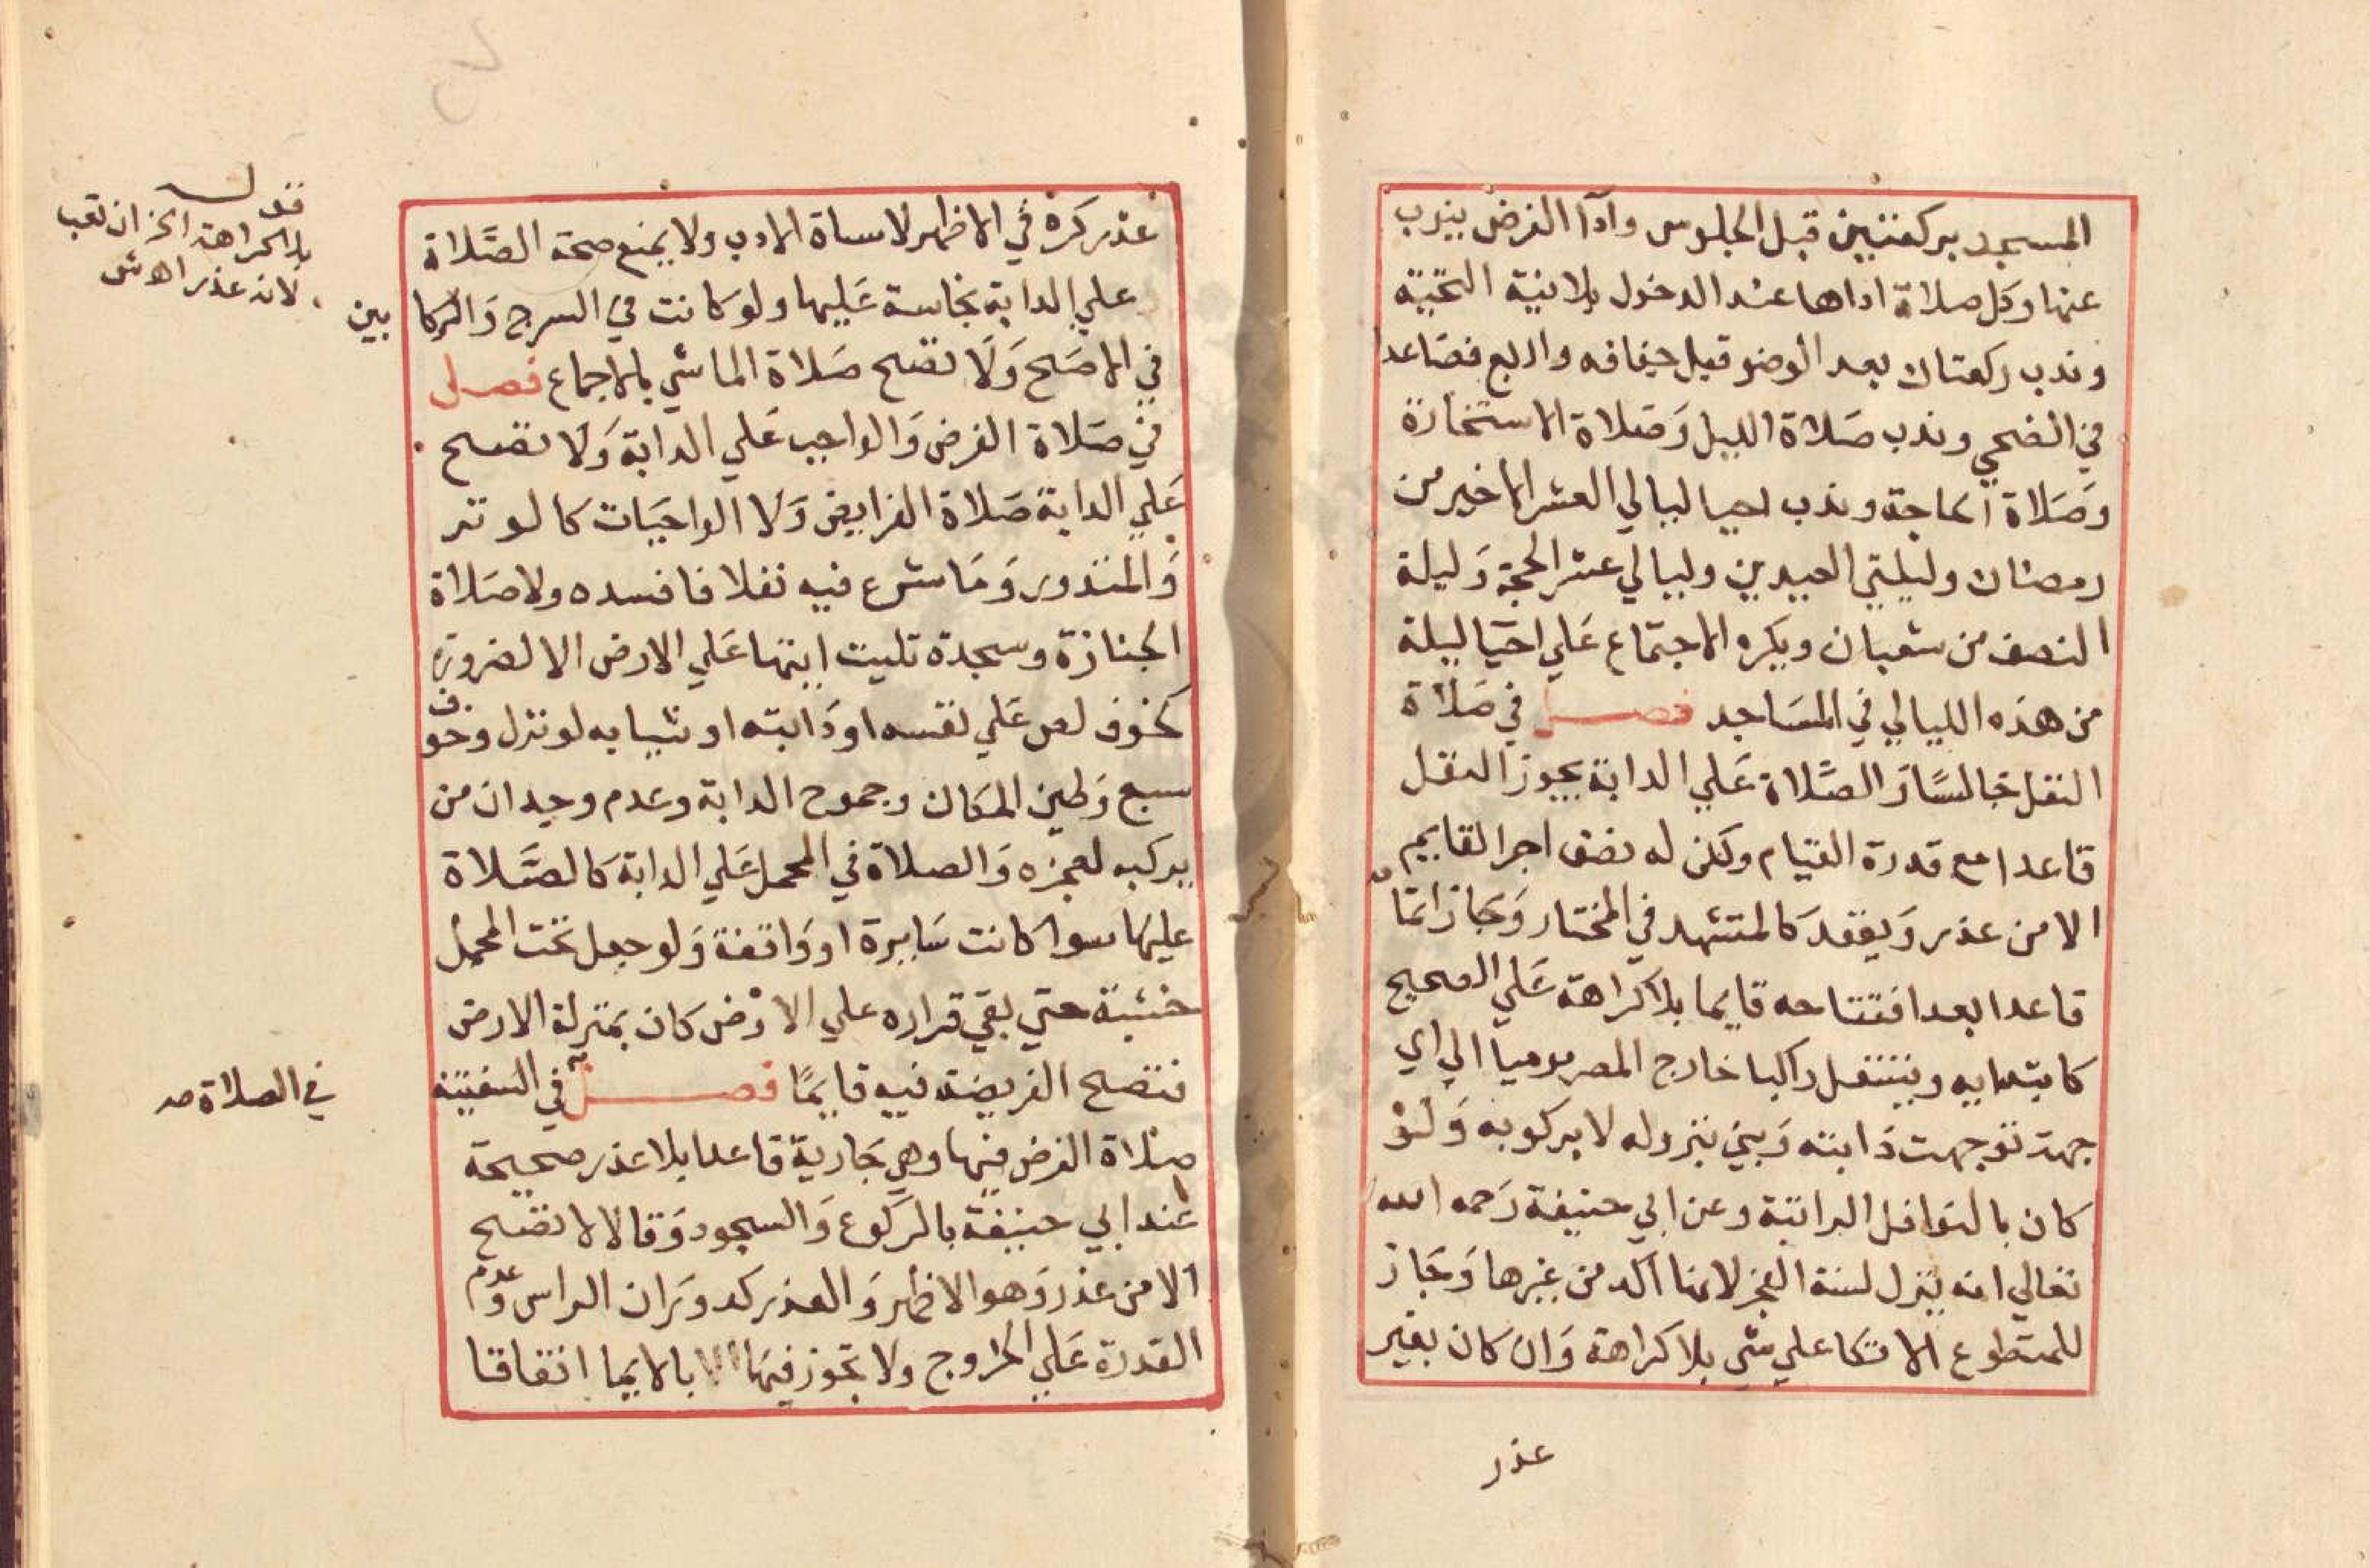 المسجد بركعتين قبل الجلوس وادآ الفرض ينوب
عنها وكل صلاة اداها عند الدخول بلا نية التحية
وندب ركعتان بعد الوضو قبل جفافه واربع فصاعدا
في الضحي وندب صلاة الليل وَصلاة الاستخارة
وَصَلاة الحاجة وندب احيا ليالي العشر الاخير من
رمضان وليلتي العيدين وليالي عشر الحجة وَليلة
النصف من شعبان ويكره الاجتماع عَلي احيَا ليلة
من هذه الليالي في المسَاجد فصل في صَلاة
النفل جالسًا وَالصَّلاة عَلي الدابة يجوز النفل
قاعدا مع قدرة القيام ولكن له نصف اجر القايم
الا من عذر وَيقعد كالمتشهد في المختار وَجَاز اتما
مه
قاعدا بعد افتتاحه قايما بلا كراهة عَلي الصحيح
كابتدايه ويتنفل راكبا خارج المصر موميا الي اي
جهة توجهت دَابته وَبني بنزوله لا بركوبه وَلَوْ
كان بالنوافل الراتبة وعن ابي حنيفة رَحمه الله
تعالي انه ينزل لسنة الفجر لانها اكد من غيرها وَجَاز
للمتطوع الاتكا علي شي بلا كراهة وَان كان بغير
عذر
عذر كره في الاظهر لاساة الادب ولا يمنع صحة الصَّلاة
علي الدابة نجاسة عَليها ولو كانت في السرج وَالركا بين
في الاصَح وَلَا تصح صَلاة الماشي بالاجماع فصل
في صَلاة الفرض وَالواجب عَلي الدابة وَلَا تصح
عَلي الدابة صَلاة الفرايض وَلَا الواجبَات كالوتر
وَالمنذور وَمَا شرع فيه نفلا فافسده ولا صَلاة
الجنازة وسجدة تليت ايتها عَلي الارض الا لضرورة
كخوف لص عَلي نفسه او دَابته او ثيابه لو نزل وخوف
سبع وَطين المكان وجموح الدابة وعدم وجدان من
يركبه لعجزه وَالصلاة في المحمل عَلي الدابة كالصَّلاة
عليها سوا كانت سَايرة او وَاقفة وَلو جعل تحت المحمل
خشبة حتي بقي قراره علي الارْض كان بمنزلة الارض
فتصح الفريضة فيه قايمًا فصل في السفينة
صلاة الفرض فيها وهي جَارية قاعدا بلا عذر صحيحة
عند ابي حنيفة بالركوع وَالسجود وَقالا لا تصح
الا من عذر وَهو الاظهر وَالعذر كدوَران الراس وعدم
القدرة عَلي الخروج ولا تجوز فيهَا بالايما اتفاقا
قوله
بلا كراهة الخ ان تعب
لانه عذر اه ش
في الصلاة صـ